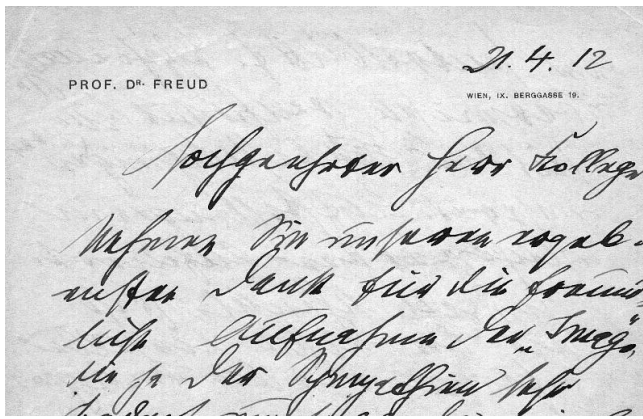 21. 4. 12
PROF. DR. FREUD
WIEN, IX. BERGGASSE 19.
Hochgeehrter Herr Kollege
Nehmen Sie unseren ergeb-
ensten Dank für die freund-
liche Aufnahme der „Imago“
die ja der Sympathien sehr
bedarf